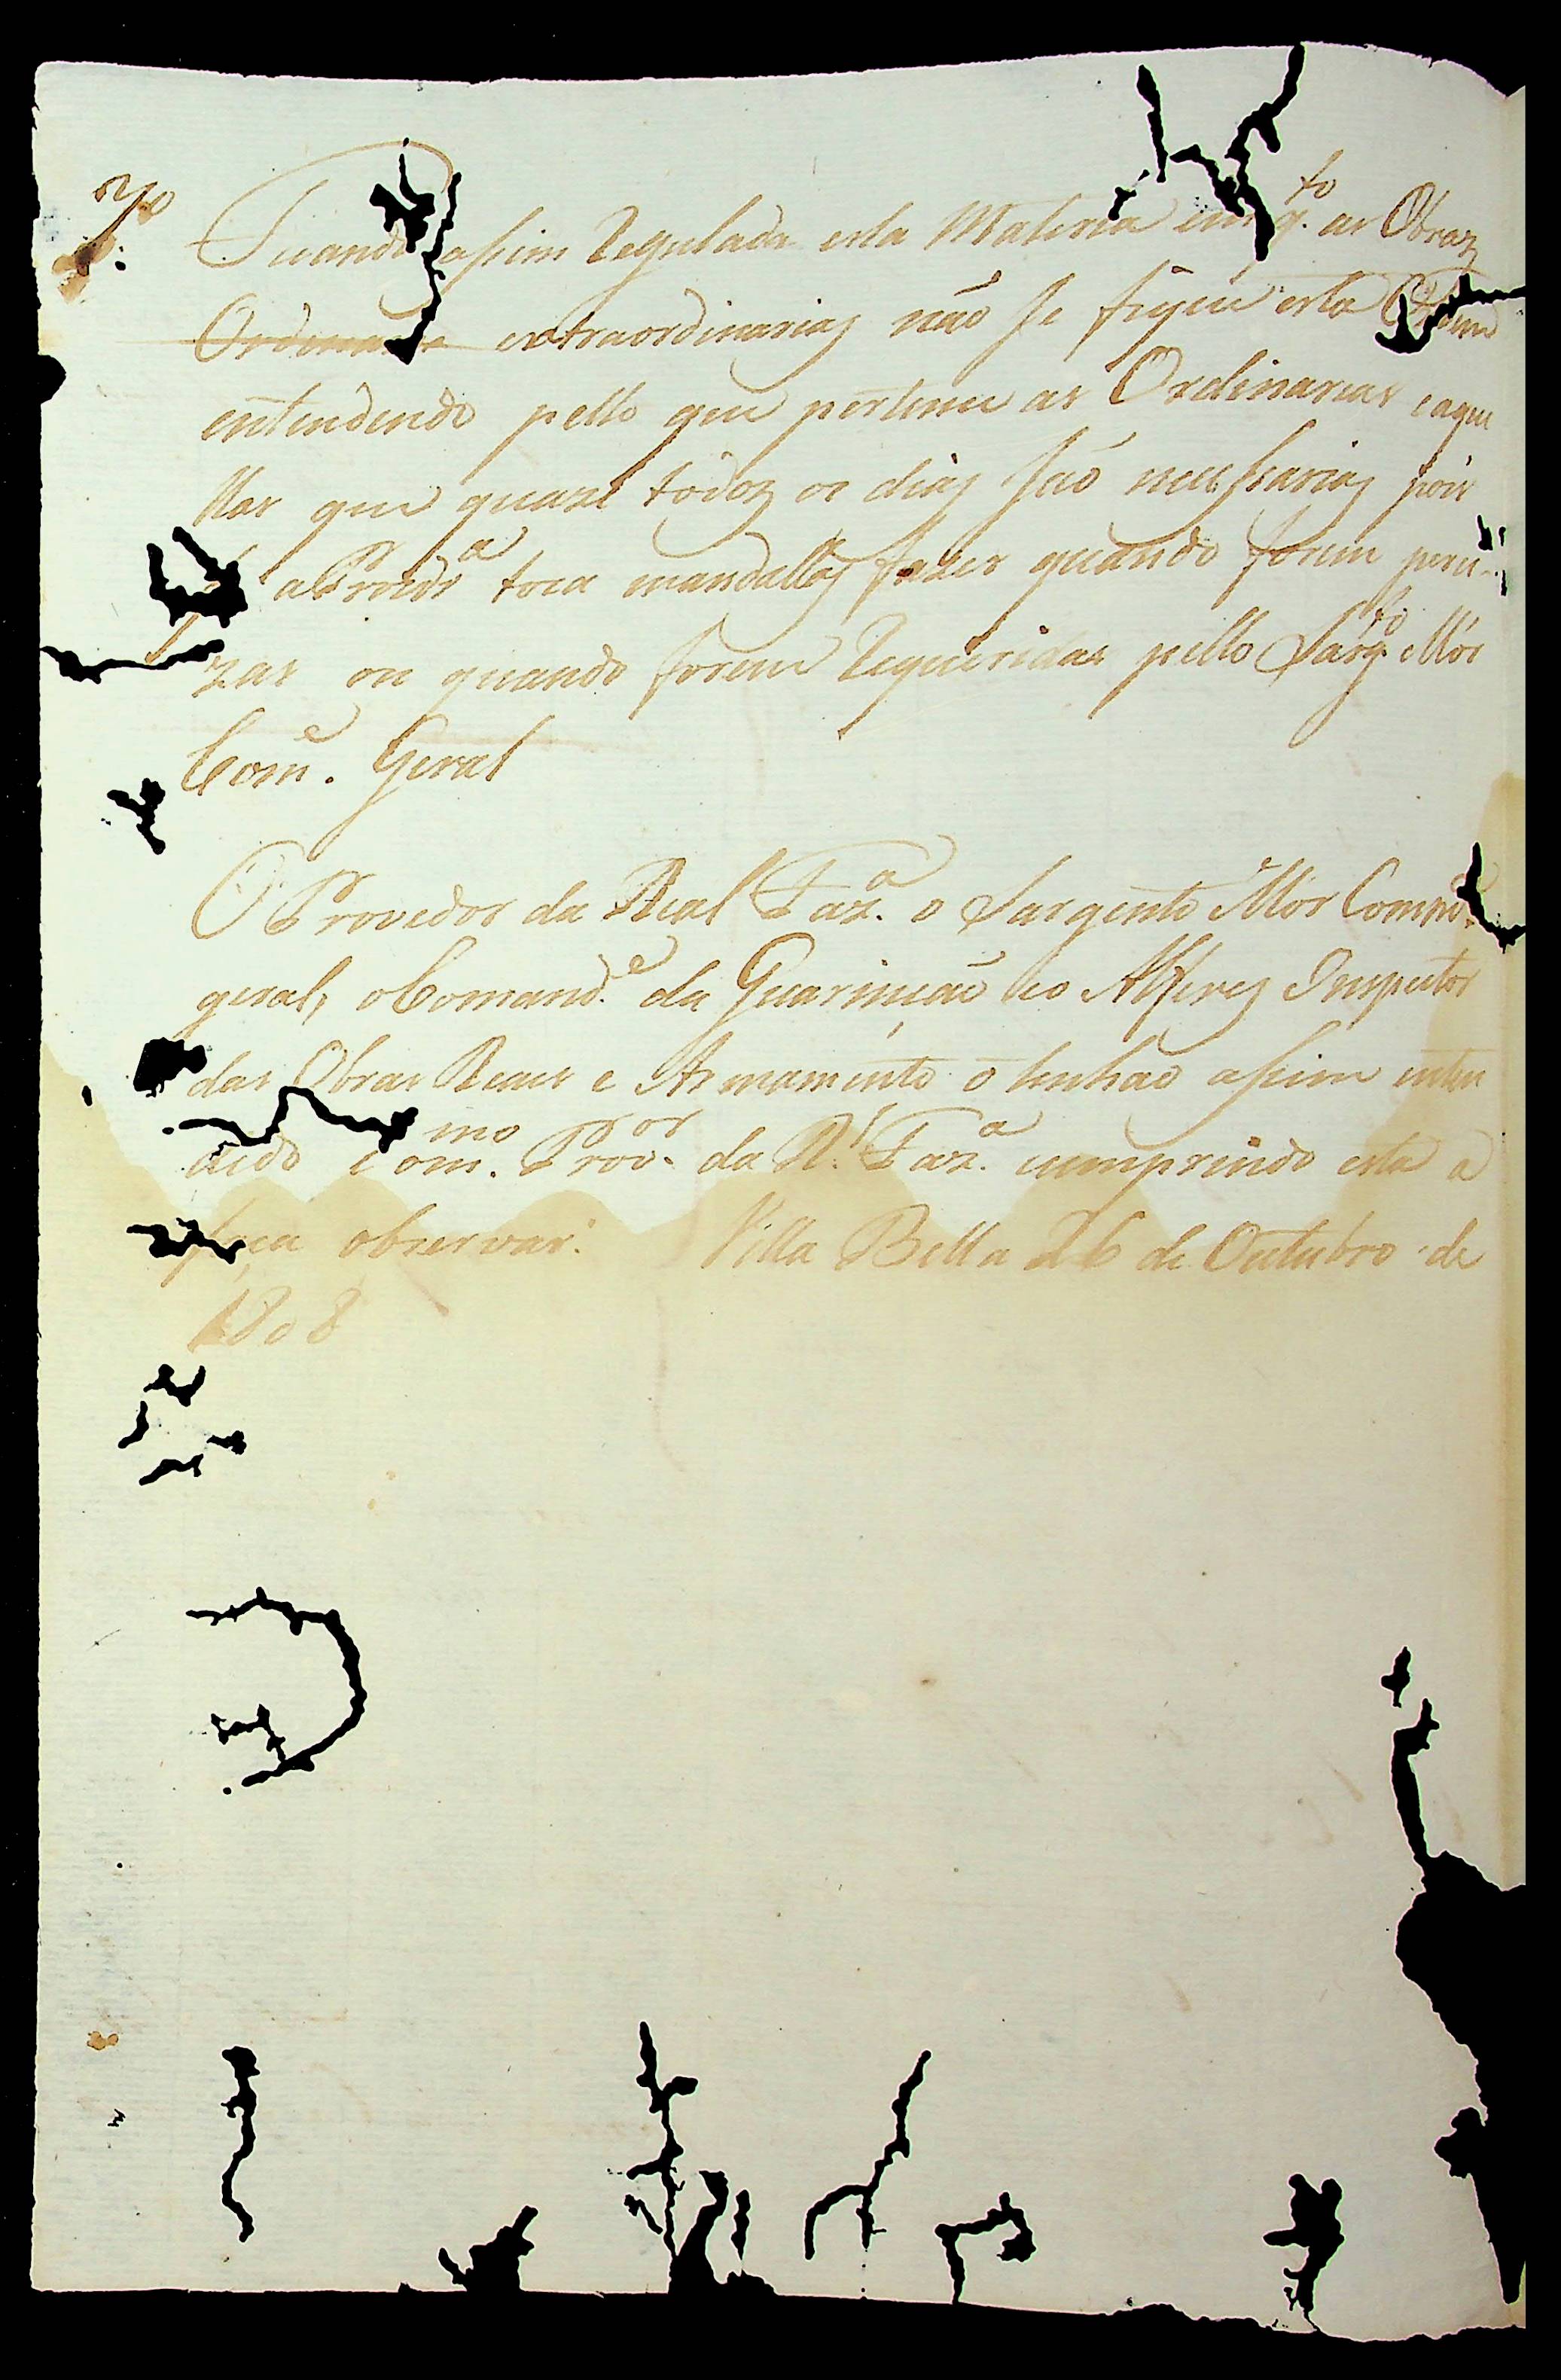 7º Ficando assim Regulada esta Materia emqto. as Obraz
Ordinaria extraordinarias não se siguiu esta Ordem
entendendo pello que pertence as Ordinarias eaque
llas que quaze todoz os dias são necessarias pois
aProvdra toca mandallas fazer quando forem preci
zas ou quando forem Requeridas pello Sargto. Mór
Come. Geral
O Provedor da Real Faza. o Sargento Mór Comme.
geral, oComande. da Guarnição eo Alferes Inspector
das Obras Reaes e Armamento o tenhão assim enten
dido eomº. Provor. da Rl. Faza. cumprindo esta a
faça observar. Villa Bella 26 de Outubro de
1808